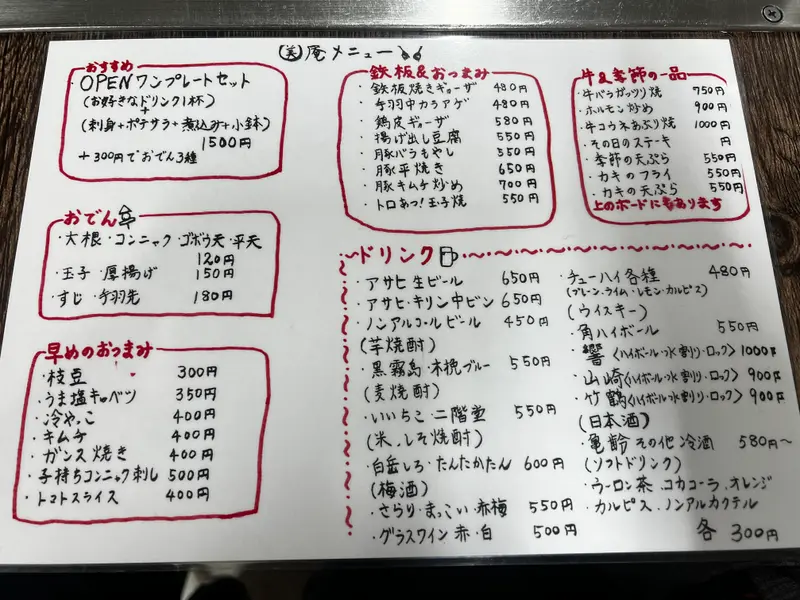 美庵メニュー
おすすめ
OPENワンプレートセット
(お好きなドリンク1杯)
+
(刺身+ポテサラ+煮込み+小鉢)
1500円
+300円でおでん3種
おでん
・大根・コンニャク・ゴボウ天・平天
120円
・玉子・厚揚げ 150円
・すじ・手羽先 180円
早めのおつまみ
・枝豆 300円
・うま塩キャベツ 350円
・冷やっこ 400円
・キムチ 400円
・ガンス焼き 400円
・子持ちコンニャク刺し 500円
・トマトスライス 400円
鉄板&おつまみ
・鉄板焼きギョーザ 480円
・手羽中カラアゲ 480円
・鶏皮ギョーザ 580円
・揚げ出し豆腐 550円
・豚バラもやし 550円
・豚平焼き 650円
・豚キムチ炒め 700円
・トロあつ!玉子焼 550円
牛&季節の一品
・牛バラガッツリ焼 750円
・ホルモン炒め 900円
・牛コウネあぶり焼 1000円
・その日のステーキ 円
・季節の天ぷら 550円
・カキのフライ 550円
・カキの天ぷら 550円
上のボードにもあります
ドリンク
・アサヒ生ビール 650円
・アサヒ・キリン中ビン 650円
・ノンアルコールビール 450円
(芋焼酎)
・黒霧島・木挽ブルー 550円
(麦焼酎)
・いいちこ・二階堂 550円
(米、しそ焼酎)
・白岳しろ・たんたかたん 600円
(梅酒)
・さらり・まっこい・赤梅 550円
・グラスワイン 赤・白 500円
・チューハイ各種 480円
(プレーン・ライム・レモン・カルピス)
(ウイスキー)
・角ハイボール 550円
・響〈ハイボール・水割り・ロック〉1000円
・山崎〈ハイボール・水割り・ロック〉900円
・竹鶴〈ハイボール・水割り・ロック〉900円
(日本酒)
・亀齢 その他 冷酒 580円~
(ソフトドリンク)
・ウーロン茶、コカコーラ、オレンジ
・カルピス、ノンアルカクテル
各 300円